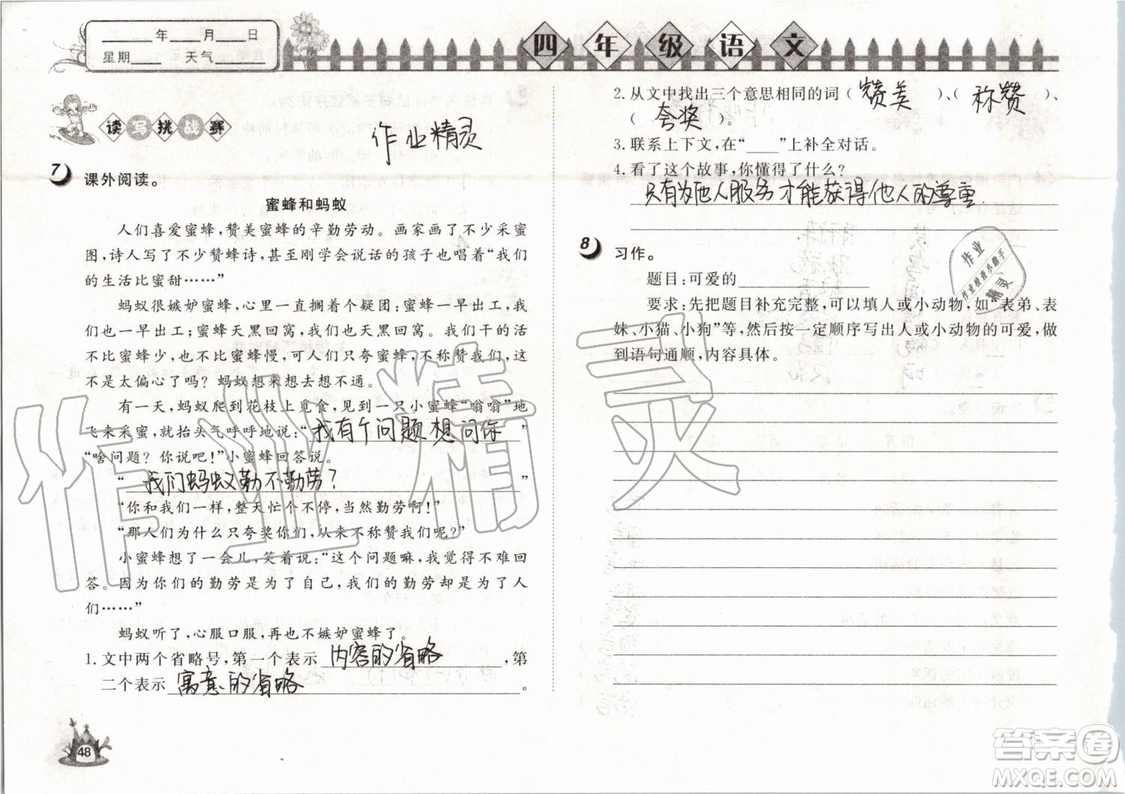 ____年____月____日
星期____ 天气____
四年级语文
读写挑战赛
作业精灵
7 课外阅读。
蜜蜂和蚂蚁
人们喜爱蜜蜂，赞美蜜蜂的辛勤劳动。画家画了不少采蜜
图，诗人写了不少赞蜂诗，甚至刚学会说话的孩子也说：“我们
的生活比蜜甜……”
蚂蚁很嫉妒蜜蜂，心里一直搁着个疑团：蜜蜂一早出工，我
们也一早出工；蜜蜂天黑回窝，我们也天黑回窝；我们的力气
不比蜜蜂少，也不比蜜蜂慢，可人们只夸蜜蜂，不称赞我们，这
不是太偏心了吗？蚂蚁想来想去想不通。
有一天，蚂蚁爬到花枝上觅食，见到一只小蜜蜂“嗡嗡”地
飞来采蜜，就抬头气呼呼地说：“我有个问题想问你”
“啥问题？你说吧！”小蜜蜂回答说。
“我们蚂蚁勤不勤劳？”
“你和我们一样，整天忙个不停，当然勤劳啊！”
“那人们为什么只夸奖你们，从来不称赞我们呢？”
小蜜蜂想了一会儿，笑着说：“这个问题嘛，我觉得不难回
答。因为你们的勤劳是为了自己，我们的勤劳却是为了人
们……”
蚂蚁听了，心服口服，再也不嫉妒蜜蜂了。
1. 文中两个省略号，第一个表示内容的省略，第
二个表示寓意的省略。
48
2. 从文中找出三个意思相同的词（赞美）、（称赞）、
（夸奖）。
3. 联系上下文，在“____”上补全对话。
4. 看了这个故事，你懂得了什么？
只有为他人服务才能获得他人的尊重
8 习作。
题目：可爱的________
要求：先把题目补充完整，可以填人或小动物，如“表弟、表
妹、小猫、小狗”等，然后按一定顺序写出人或小动物的可爱，做
到语句通顺，内容具体。
作业
精灵
作业精灵
答案卷
MXQE.COM